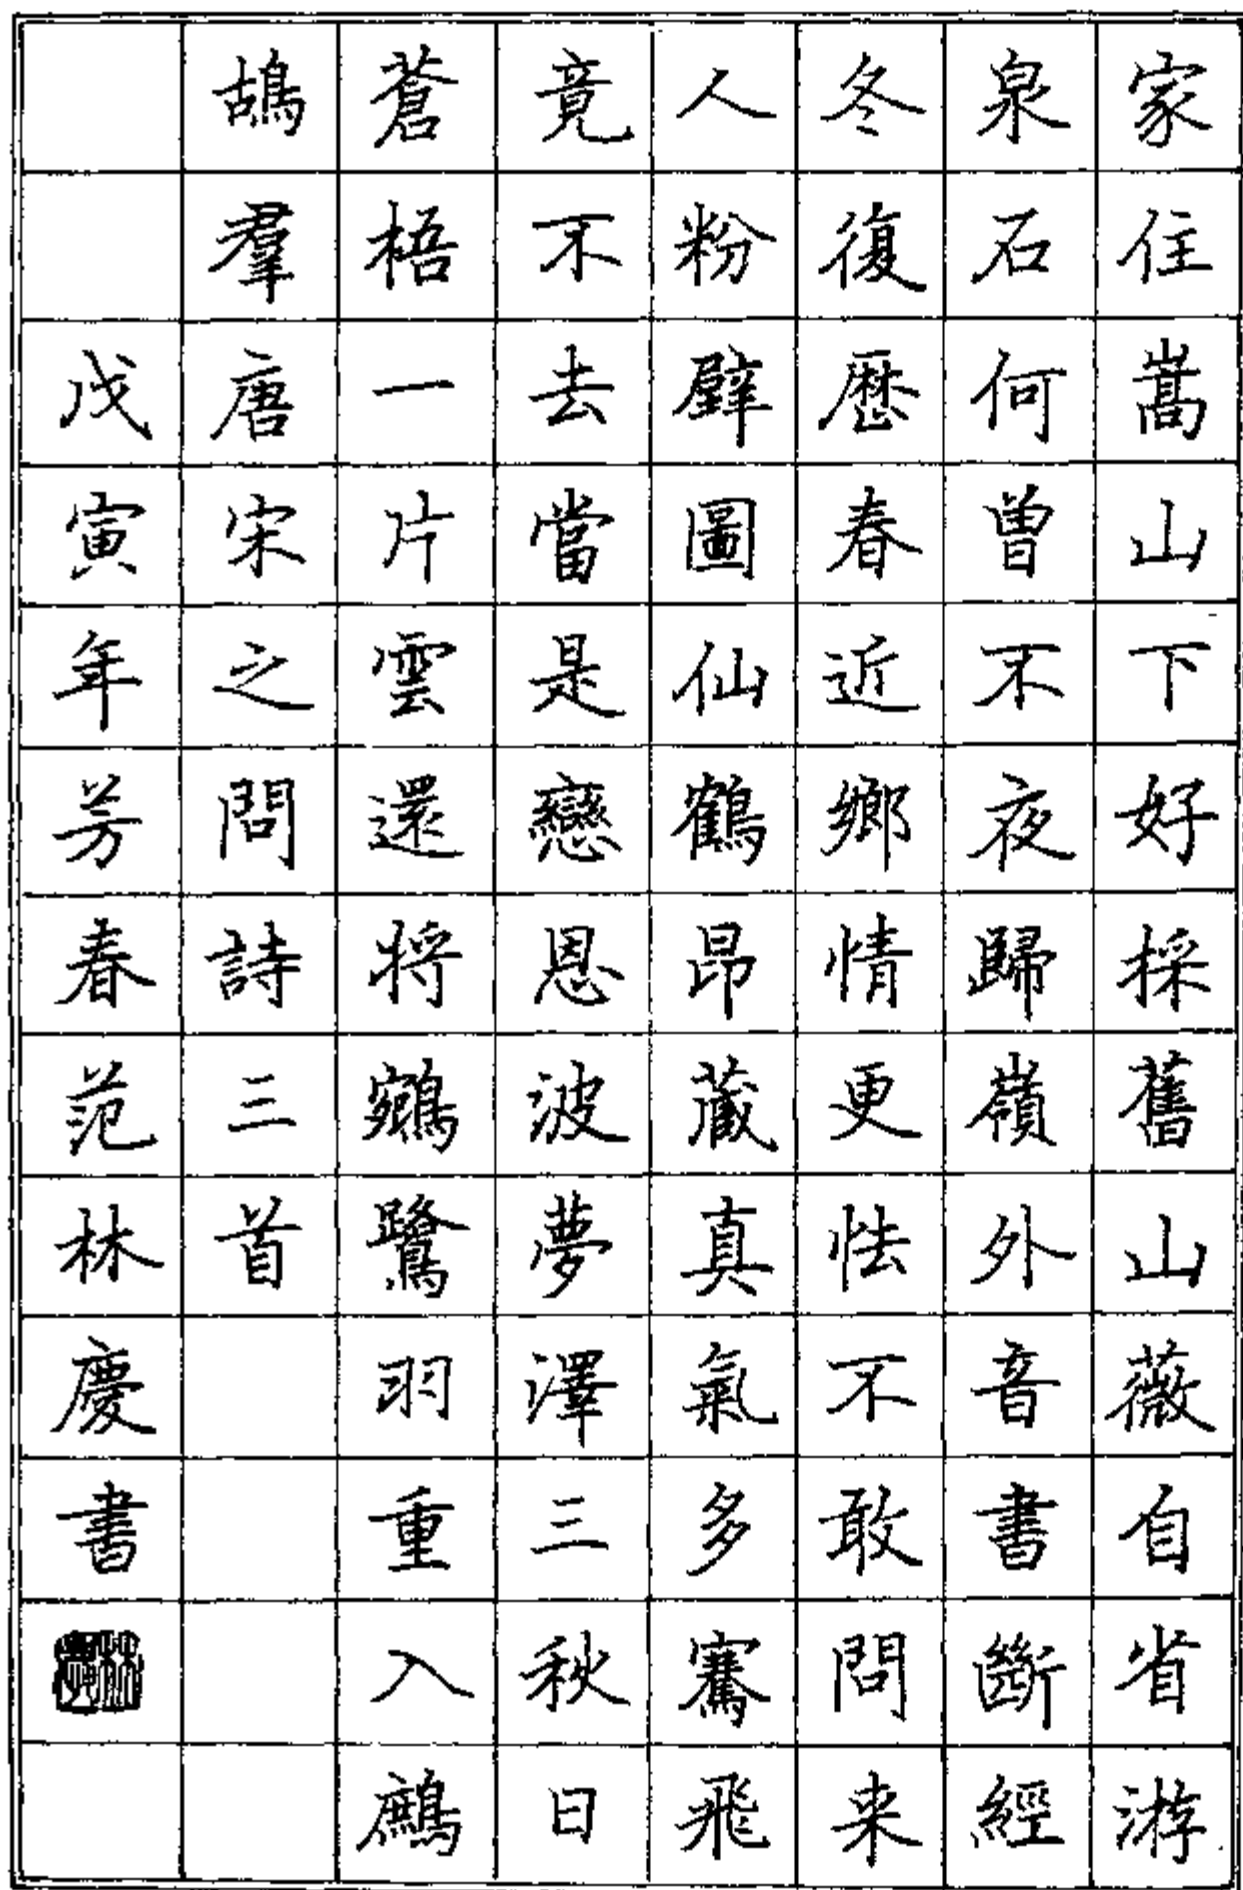 家住嵩山下好採舊山薇自省游
泉石何曾不夜歸嶺外音書斷經
冬復歷春近鄉情更怯不敢問来
人粉壁圖仙鶴昂藏真氣多騫飛
竟不去當是戀恩波夢澤三秋日
蒼梧一片雲還将鵷鷺羽重入鷓
鴣羣唐宋之問詩三首
戊寅年芳春范林慶書